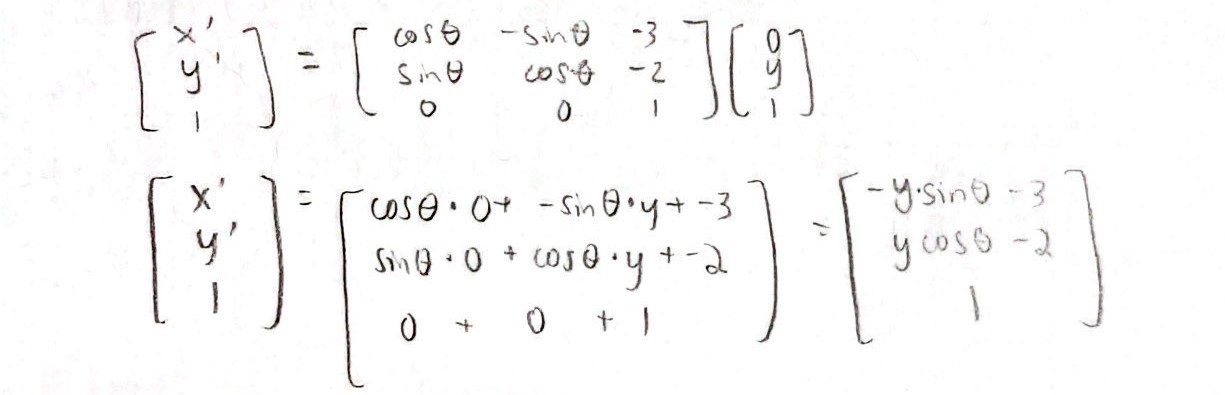 [ x' y' 1 ] = [ cosθ -sinθ -3 ; sinθ cosθ -2 ; 0 0 1 ] [ 0 y 1 ]
[ x' y' 1 ] = [ cosθ · 0 + -sinθ · y + -3 ; sinθ · 0 + cosθ · y + -2 ; 0 + 0 + 1 ] = [ -y·sinθ - 3 ; y cosθ - 2 ; 1 ]